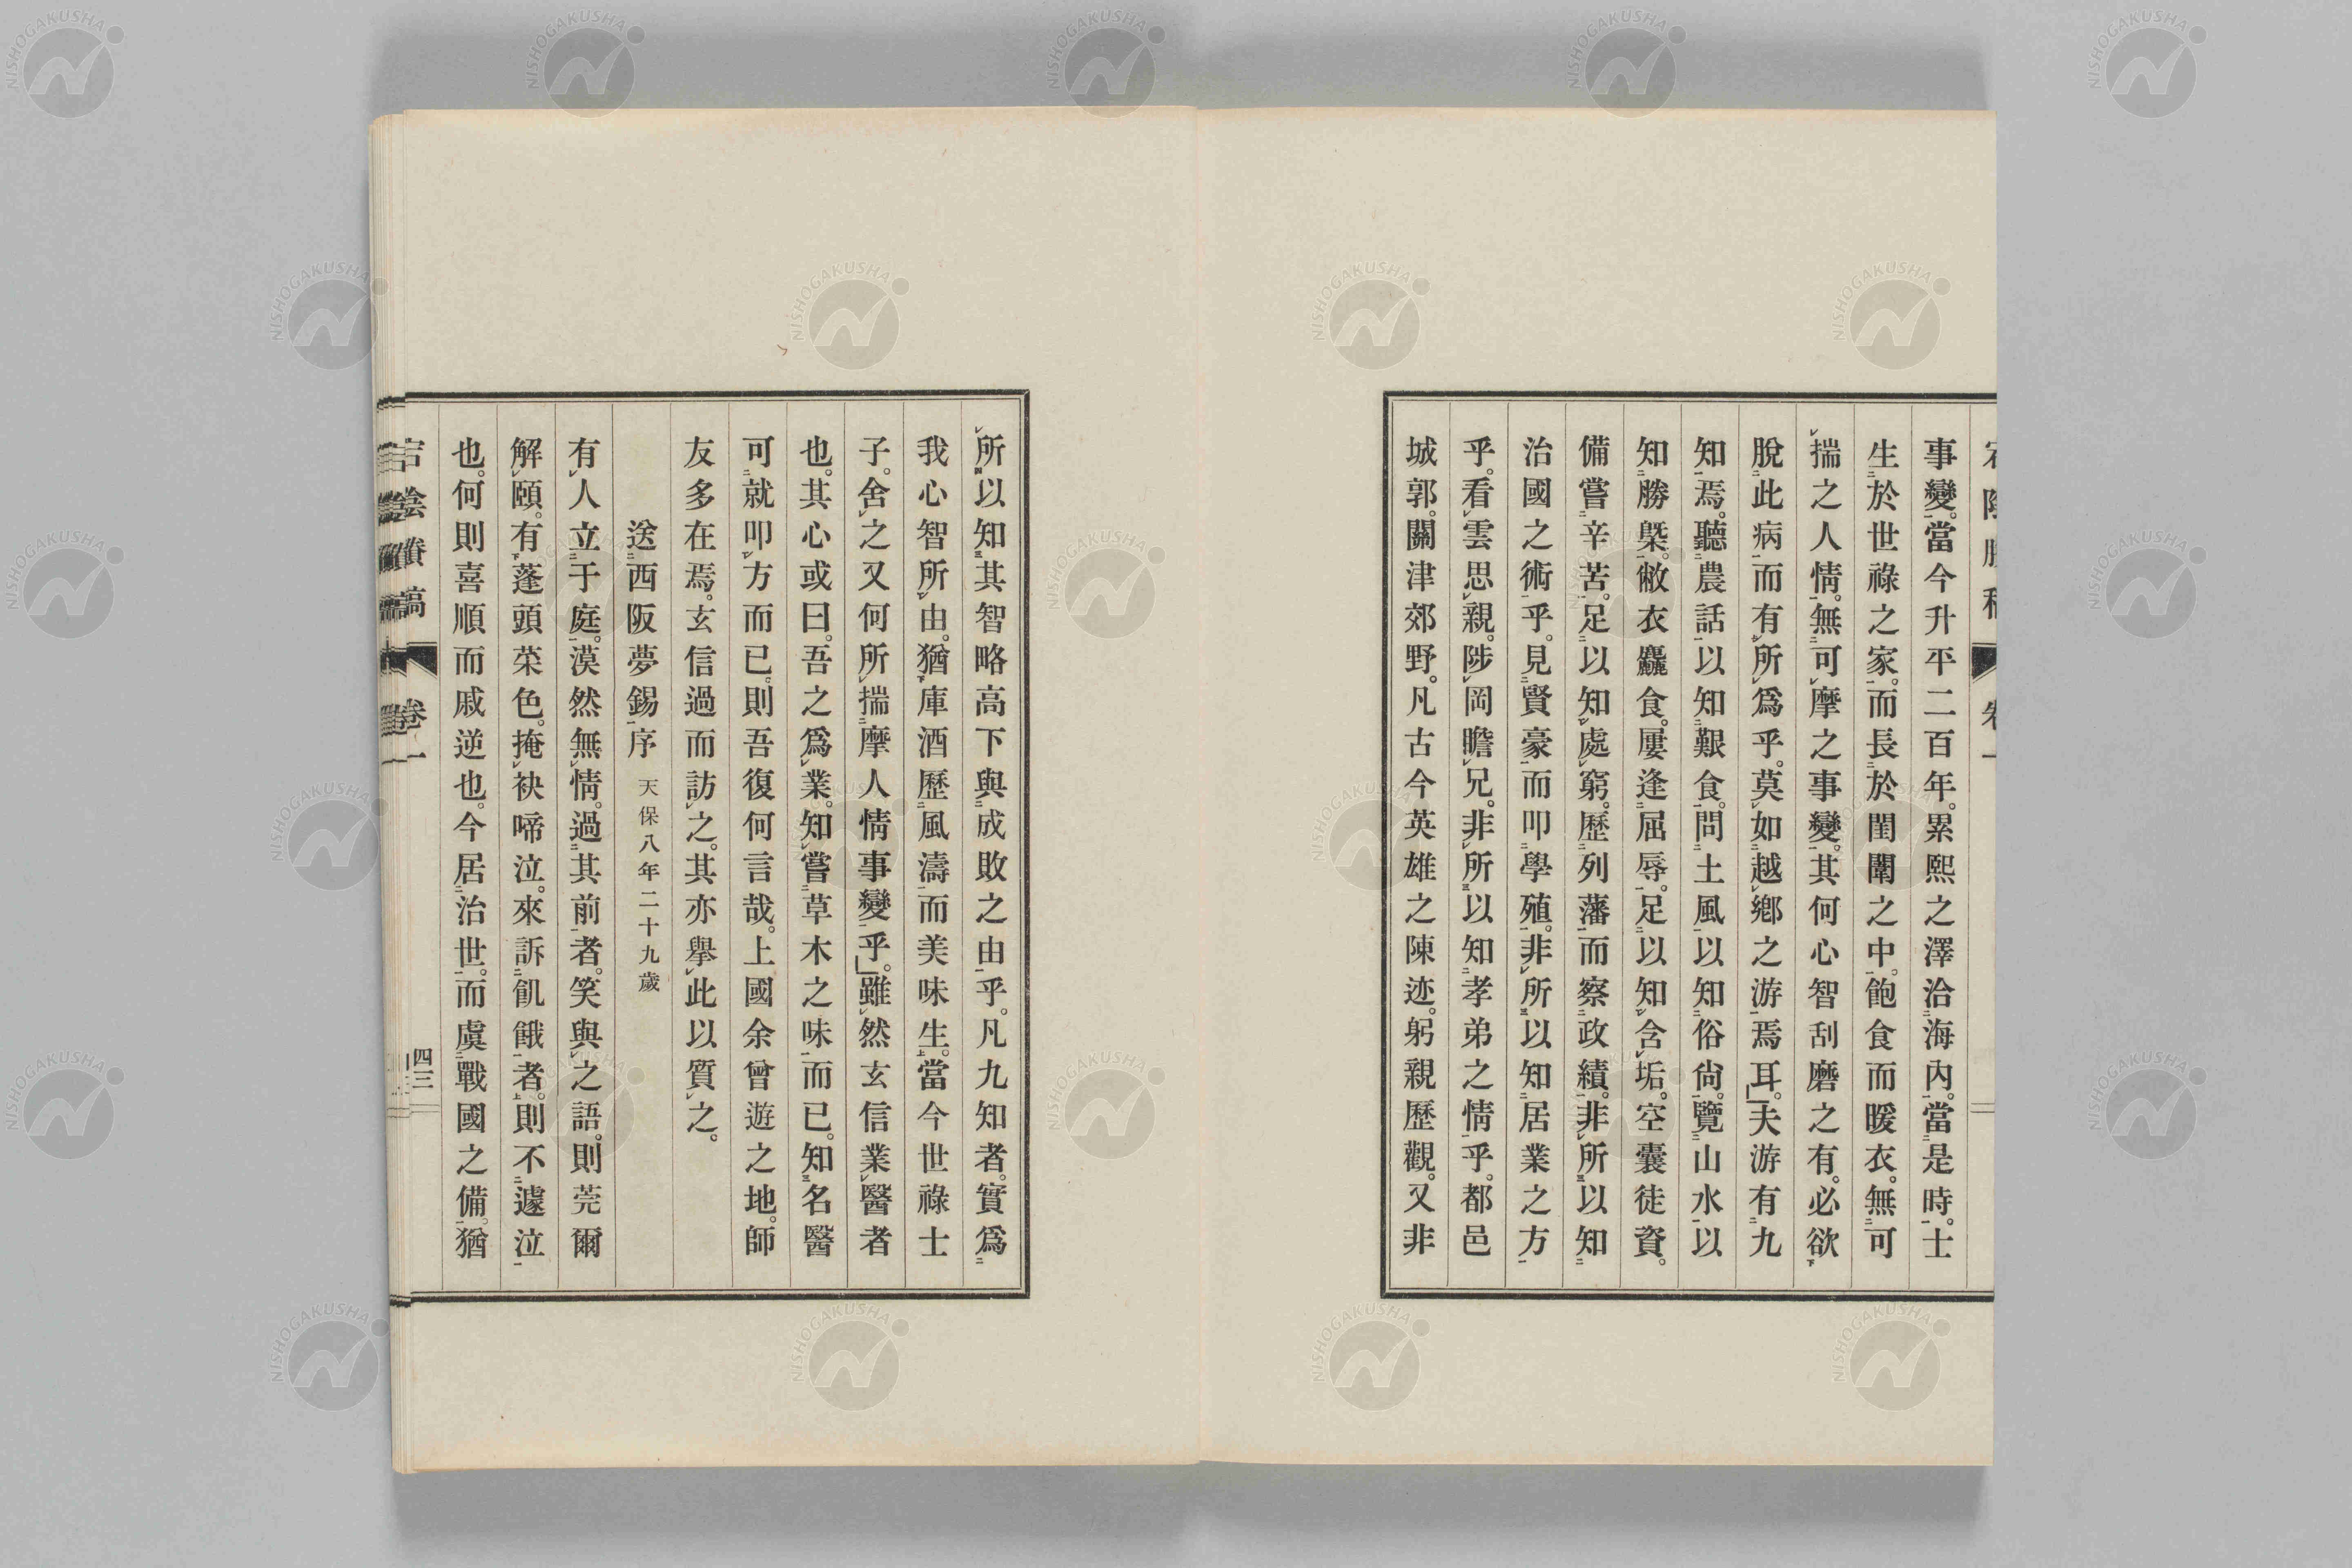 事變。當今升平二百年。累熙之澤洽海內。當是時。士
生於世祿之家。而長於閨闈之中。飽食而暖衣。無可
揣之人情。無可摩之事變。其何心智刮磨之有。必欲
脫此病而有所爲乎。莫如越鄕之游焉耳。」夫游有九
知焉。聽農話以知艱食。問土風以知俗尙。覽山水以
知勝槩。敝衣麤食。屢逢屈辱。足以知含垢。空囊徒資。
備嘗辛苦。足以知處窮。歷列藩而察政績。非所以知
治國之術乎。見賢豪而叩學殖。非所以知居業之方
乎。看雲思親。陟岡瞻兄。非所以知孝弟之情乎。都邑
城郭。關津郊野。凡古今英雄之陳迹。躬親歷觀。又非
所以知其智略高下與成敗之由乎。凡九知者。實爲
我心智所由。猶庫酒歷風濤而美味生。當今世祿士
子。舍之又何所揣摩人情事變乎。」雖然玄信業醫者
也。其心或曰。吾之爲業。知嘗草木之味而已。知名醫
可就叩方而已。則吾復何言哉。上國余曾遊之地。師
友多在焉。玄信過而訪之。其亦擧此以質之。
送西阪夢錫序 天保八年二十九歲
有人立于庭。漠然無情。過其前者。笑與之語。則莞爾
解頤。有蓬頭菜色。掩袂啼泣。來訴飢餓者。則不遽泣
也。何則喜順而戚逆也。今居治世。而虞戰國之備。猶
卷一
四三
NISHOGAKUSHA